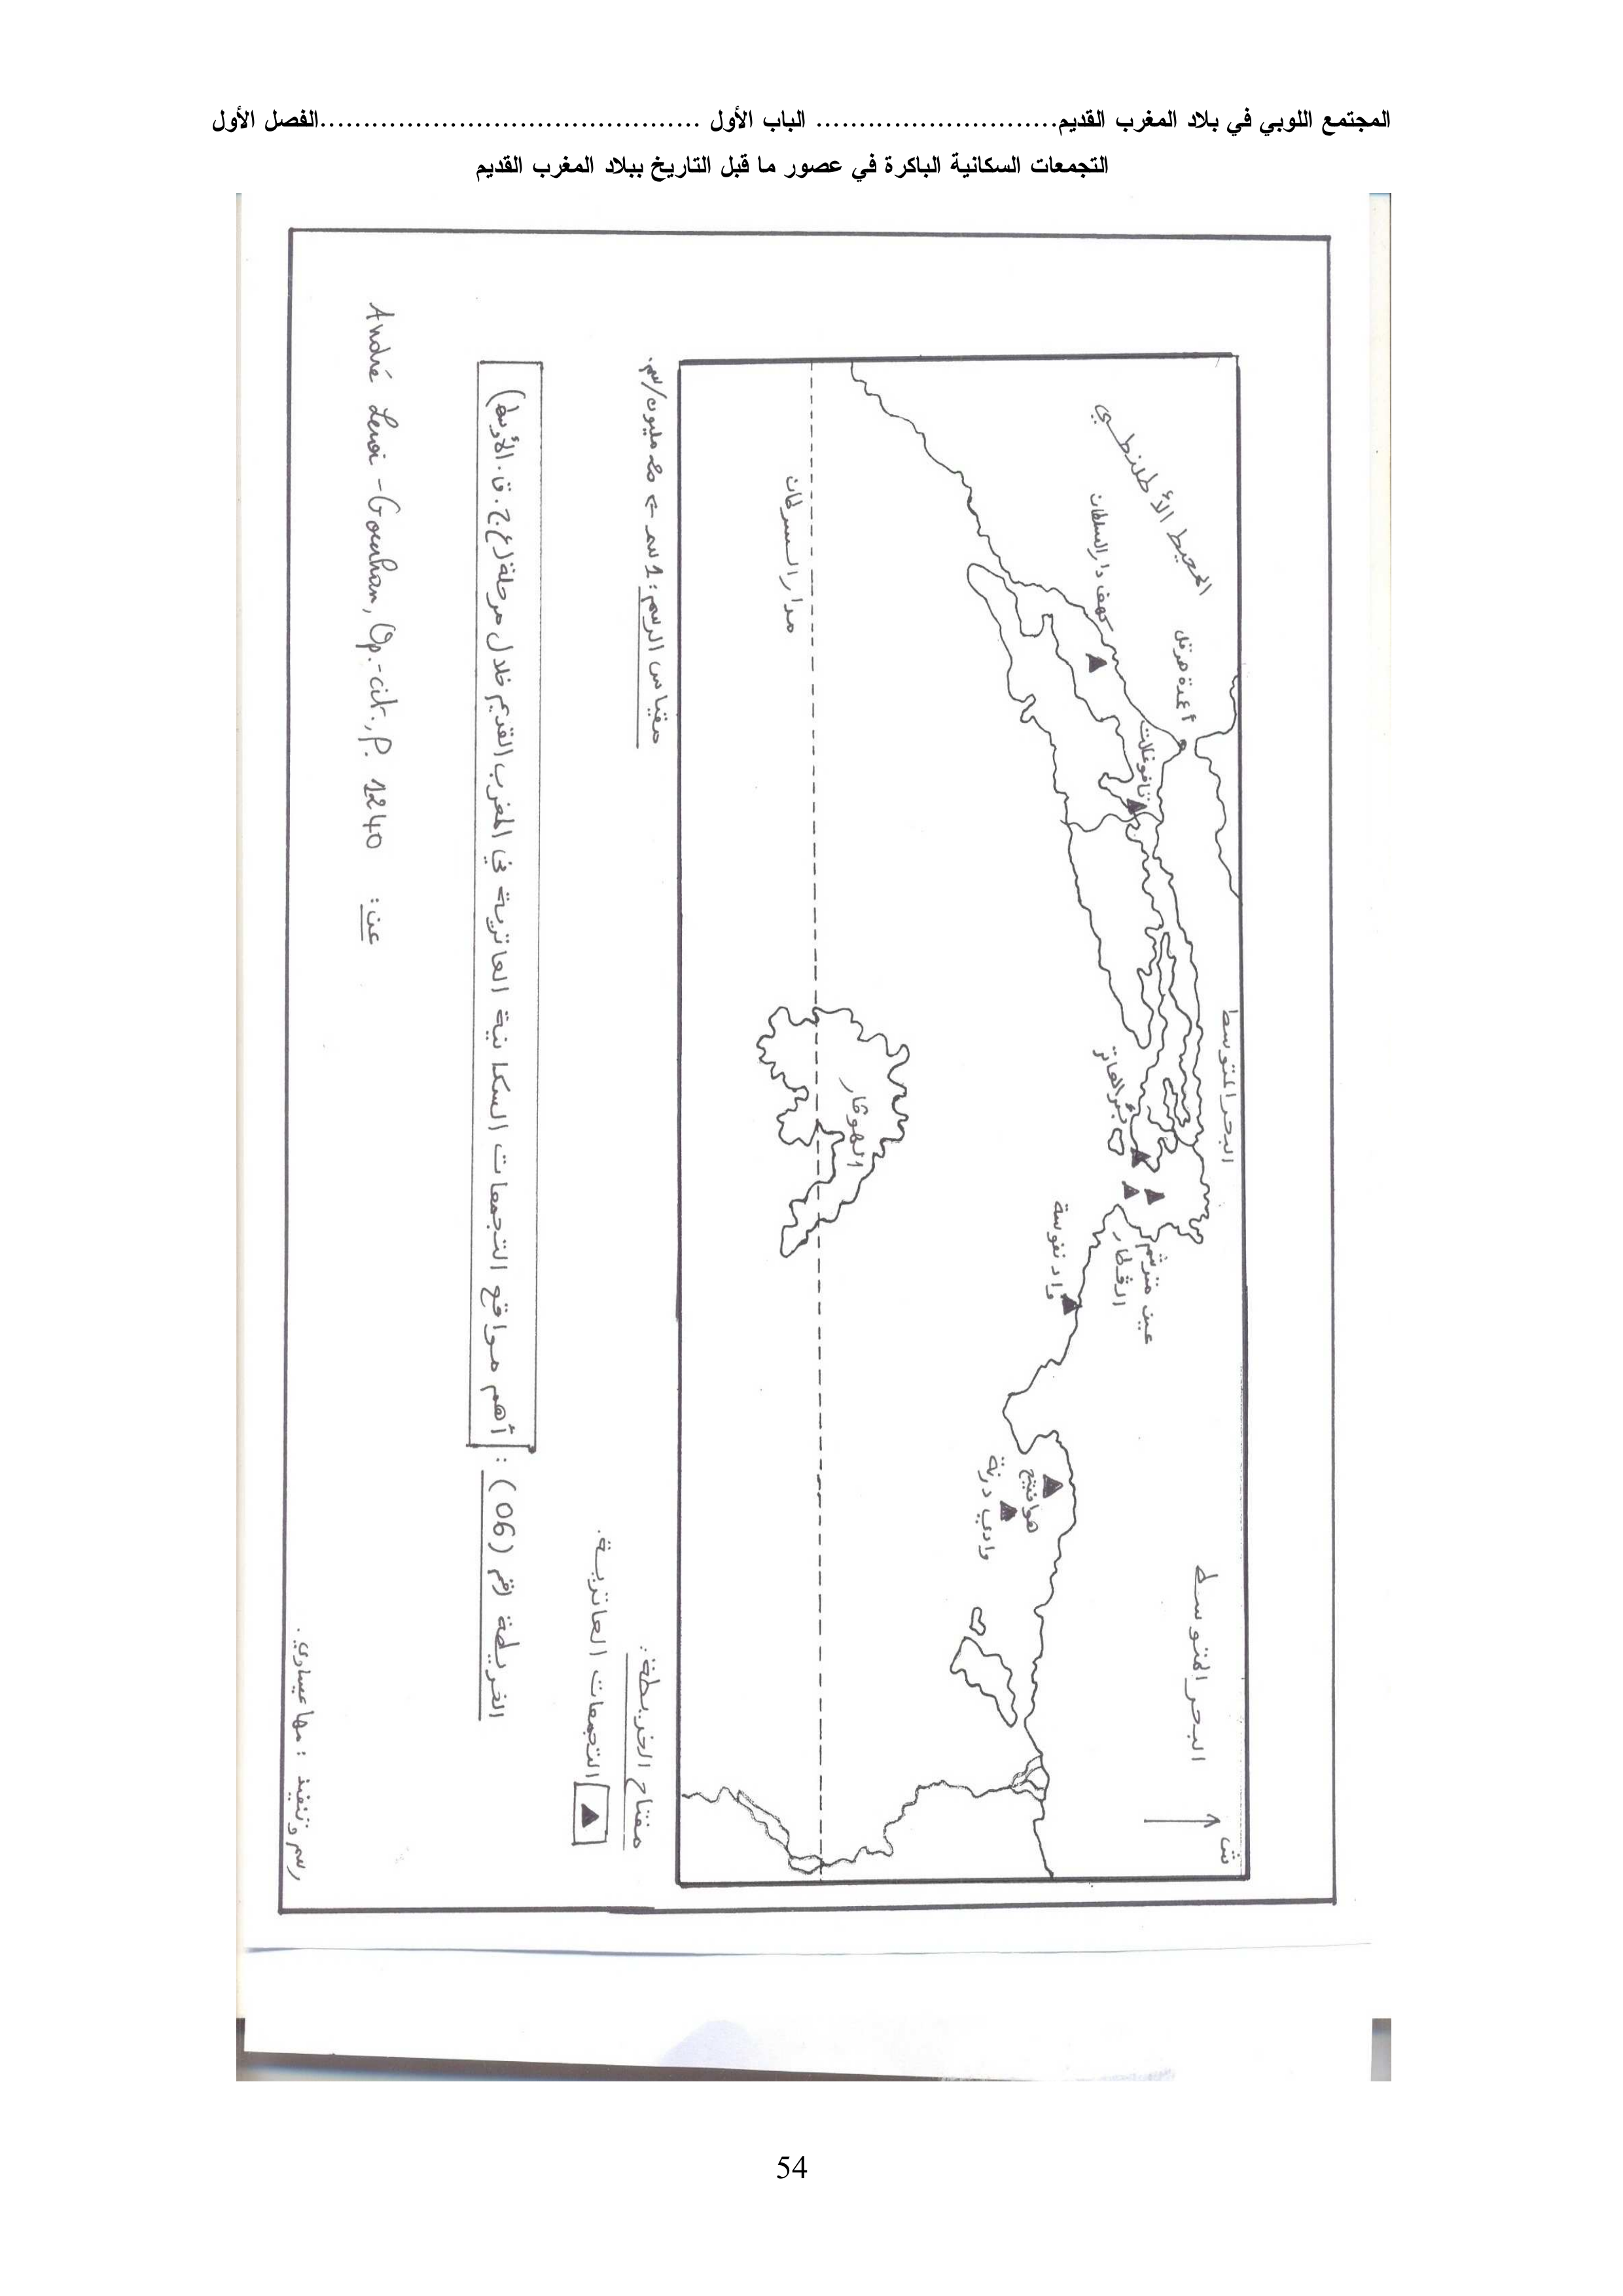 المجتمع اللوبي في بلاد المغرب القديم............................ الباب الأول ............................................الفصل الأول
التجمعات السكانية الباكرة في عصور ما قبل التاريخ ببلاد المغرب القديم
ش
البحر المتوسط
البحر المتوسط
المحيط الأطلنطي
أعمدة هرقل
كهف دار السلطان
تافوغالت
بئر العاتر
عين مترشم
القطار
واد نفوسة
هوافتيح
وادي درنة
الهوقار
مدار السرطان
مفتاح الخريطة:
التجمعات العاترية.
مقياس الرسم: 1 سم
الخريطة رقم (06): أهم مواقع التجمعات السكانية العاترية في المغرب القديم خلال مرحلة (ع.ح.ق.الأوسط)
عن: André Leroi-Gourhan, Op.-cit., P. 1240
رسم وتنفيذ: مها عيساوي.
54